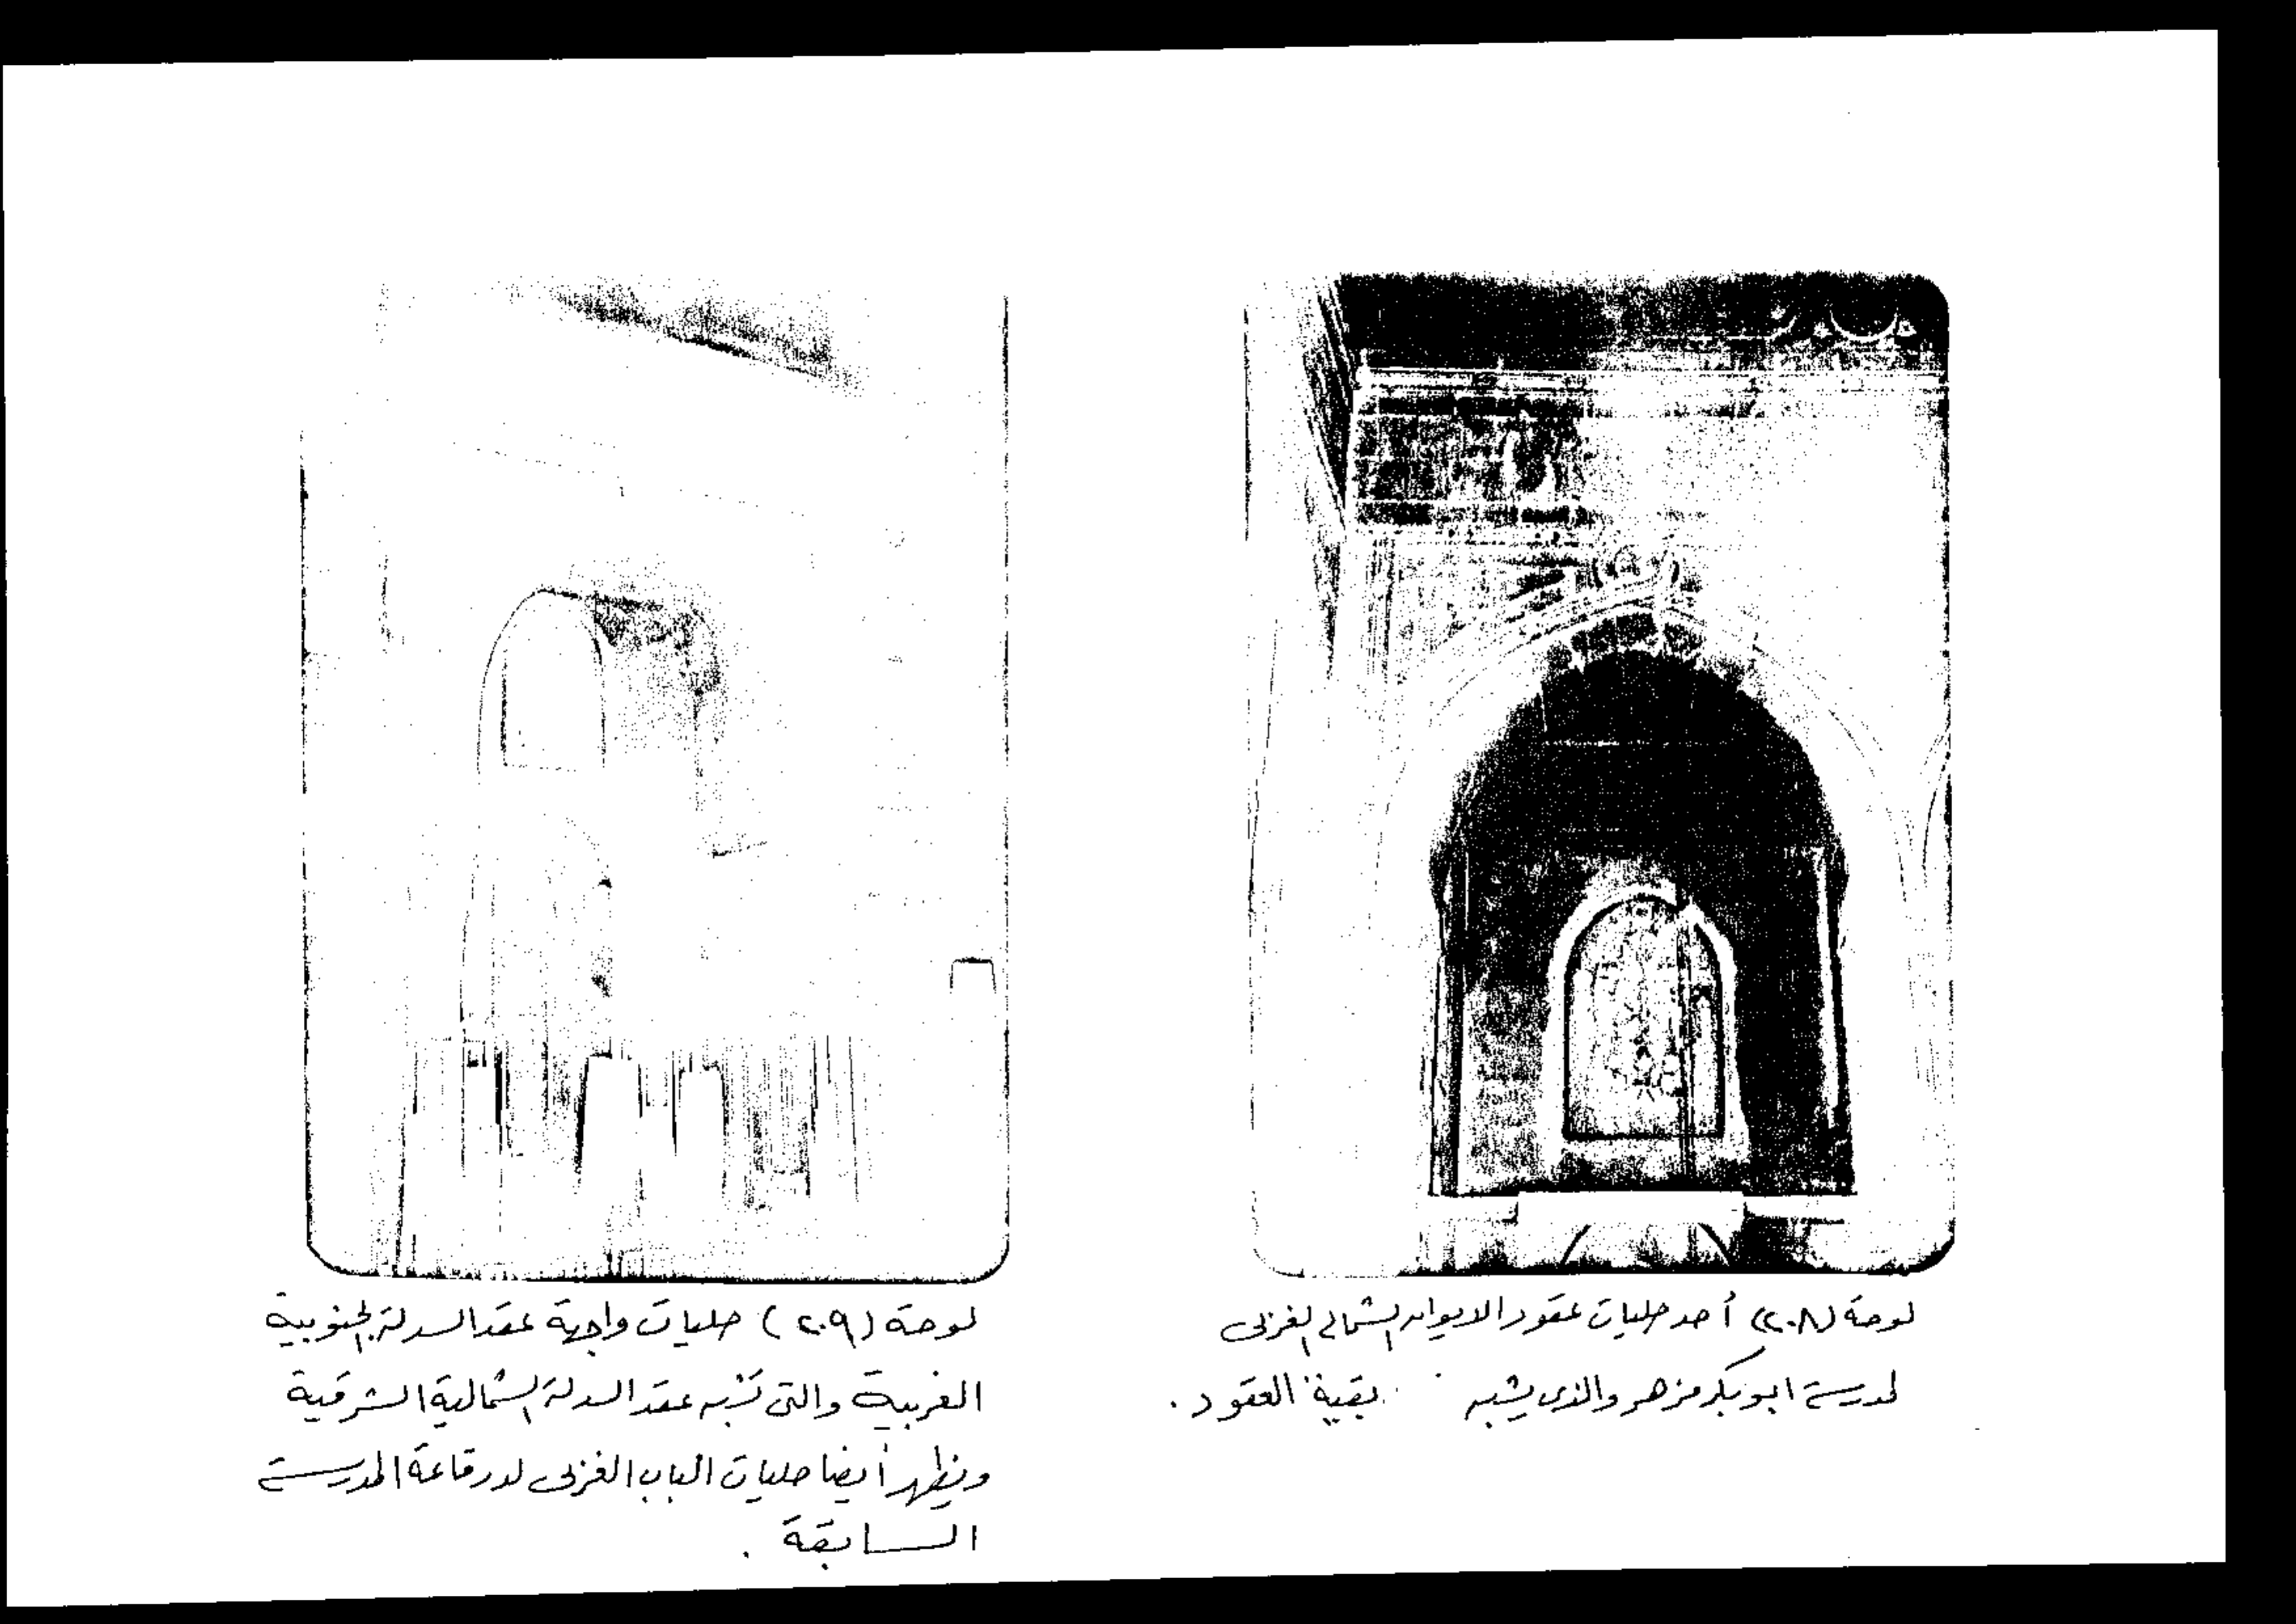 لوحة (٢٠٨) أحد حليات عقود الايوان الشمالى الغربى
لمدرسة ابو بكر مزهر والذى يشبه بقية العقود.
لوحة (٢٠٩) حليات واجهة عقد السدلة الجنوبية
الغربية والتى تشبه عقد السدلة الشمالية الشرقية
ويظهر أيضا حليات الباب الغربى لدرقاعة المدرسة
السابقة.